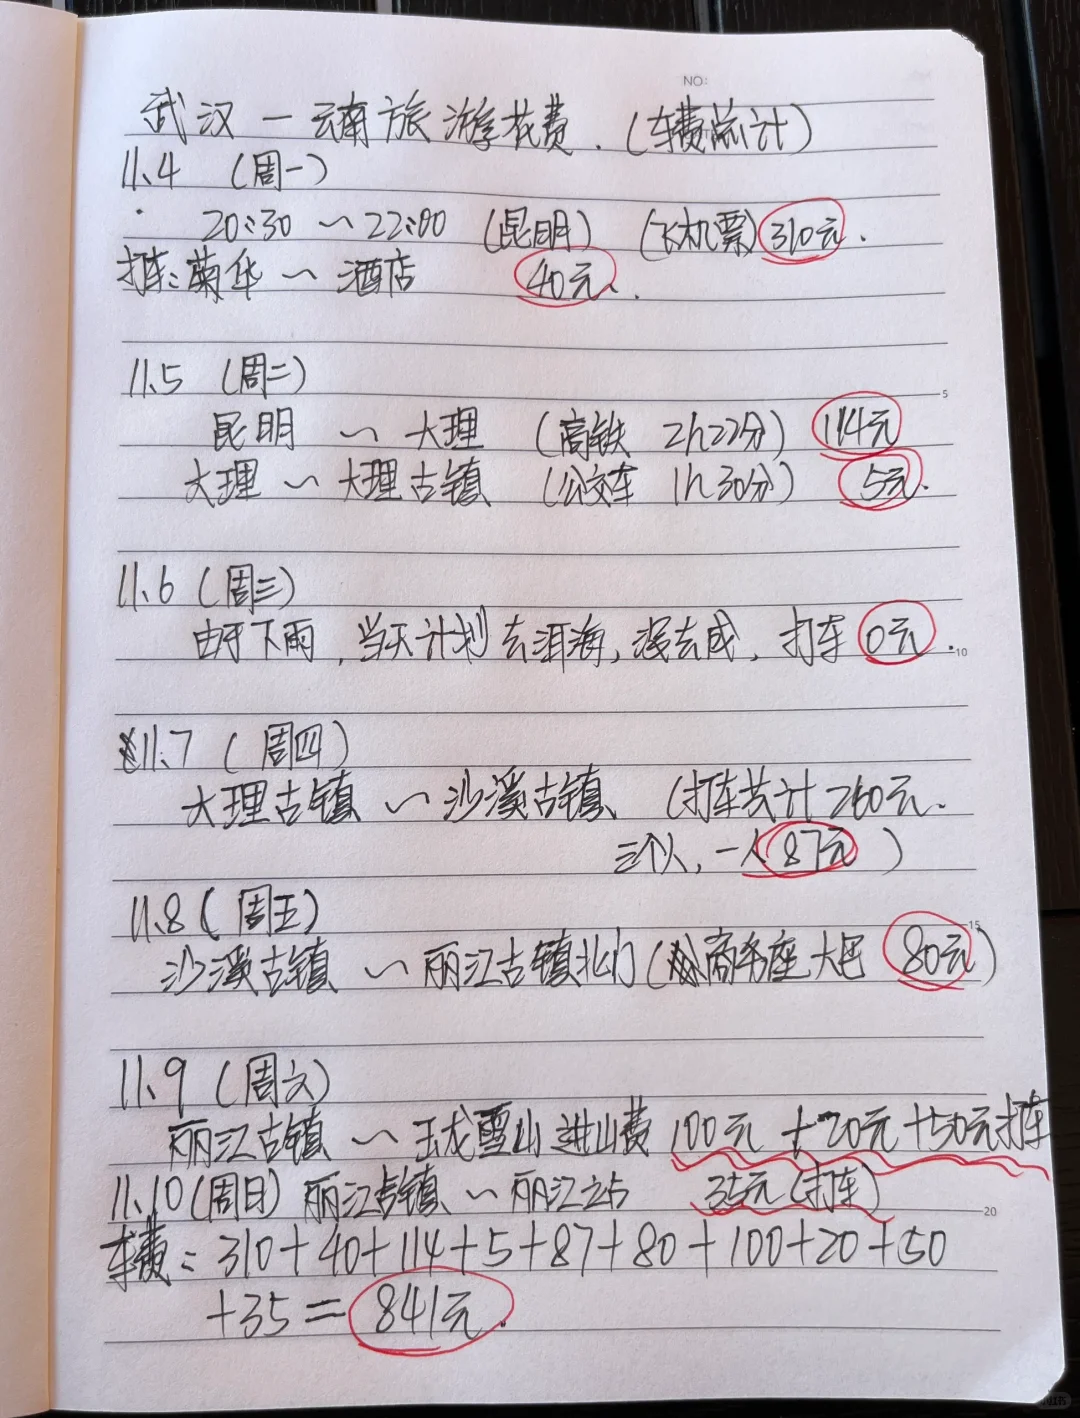 NO:
武汉一云南旅游花费.(车费总计)
11、4 (周一)
20:30 ~ 22:00 (昆明) (飞机票) 310元.
打车:菊华 ~ 酒店 40元.
11、5 (周二)
昆明 ~ 大理 (高铁 2h22分) 114元
5
大理 ~ 大理古镇 (公交车 1h30分) 5元.
11、6 (周三)
由于下雨,当天计划去洱海,没去成,打车 0元.
10
11、7 (周四)
大理古镇 ~ 沙溪古镇 (打车共计260元.
三个人,一人87元)
11、8 (周五)
15
沙溪古镇 ~ 丽江古镇北门 (商务座大巴 80元)
11、9 (周六)
丽江古镇 ~ 玉龙雪山 进山费 100元 + 20元 + 50元打车
11、10 (周日) 丽江古镇 ~ 丽江站 35元 (打车)
20
车费 = 310+40+114+5+87+80+100+20+50
+35 = 841元.